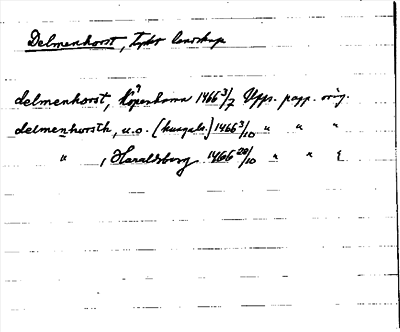 Delmenhorst, tyskt landskap
delmenhorst, Köpenhamn 1466 3/7 Upps. papp. orig.
delmenhorsth, u.o. (kungabr.) 1466 3/10 " " "
" , Haraldsborg 1466 20/10 " "